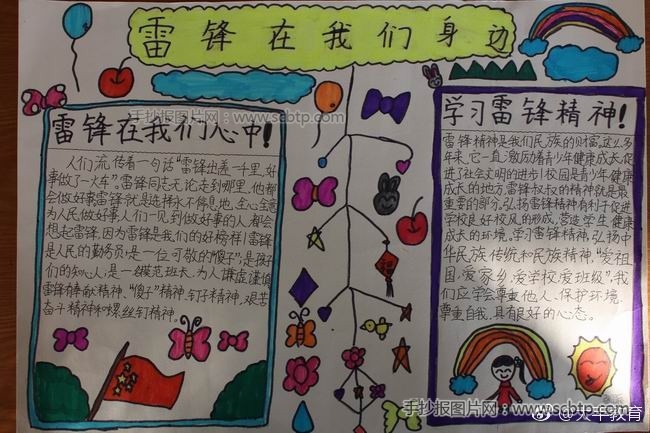 雷锋在我们身边
手抄报图片网：www.sabtp.com
雷锋在我们心中！
人们流传着一句话“雷锋出差一千里，好
事做了一火车”。雷锋同志无论走到哪里，他都
会做好事。雷锋就是这样永不停息地、全心全意
为人民做好事。人们一见到做好事的人，都会
想起雷锋，因为雷锋是我们的好榜样！雷锋
是人民的勤务员；是一位可敬的“傻子”；是孩子
们的知心人；是一名模范班长。为人谦虚谨慎
雷锋有奉献精神，“傻子”精神、钉子精神、艰苦
奋斗精神和螺丝钉精神。
学习雷锋精神！
雷锋精神是我们民族的财富，这么多
年来，它一直激励着青少年健康成长，促
进了社会文明的进步！校园是青少年健康
成长的地方，雷锋叔叔的精神就是最
重要的部分。弘扬雷锋精神有利于促进
学校良好校风的形成，营造学生健康
成长的环境。学习雷锋精神，弘扬中
华民族传统和民族精神，“爱祖
国、爱家乡、爱学校、爱班级”，我
们应学会尊重他人、保护环境
尊重自我，具有良好的心态。
手抄报图片网：www.sabtp.com